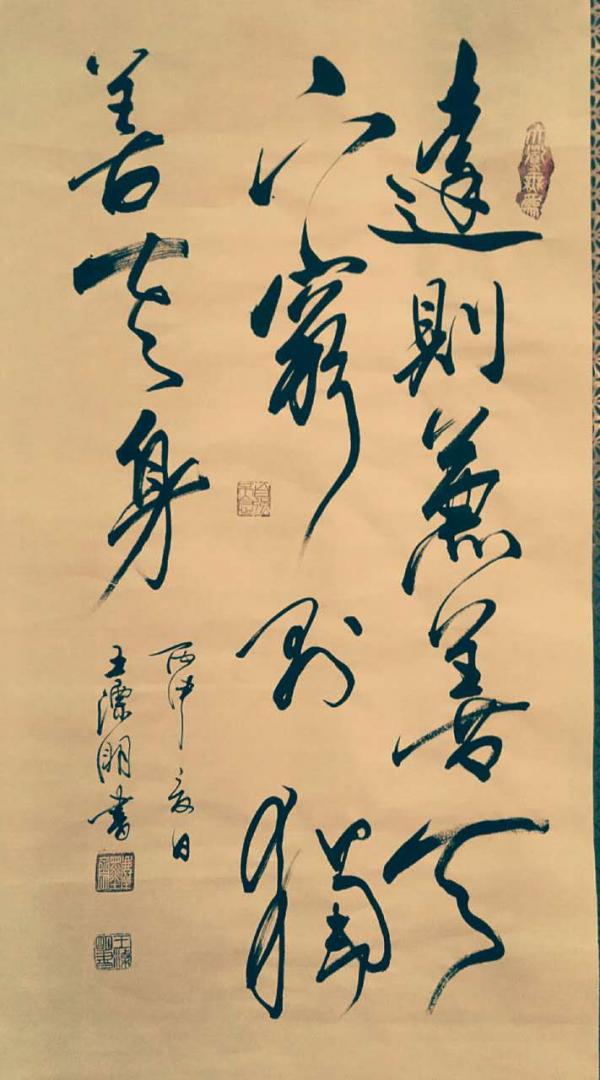 達則兼善天
下窮則獨
善其身
丙申夏日
王明書